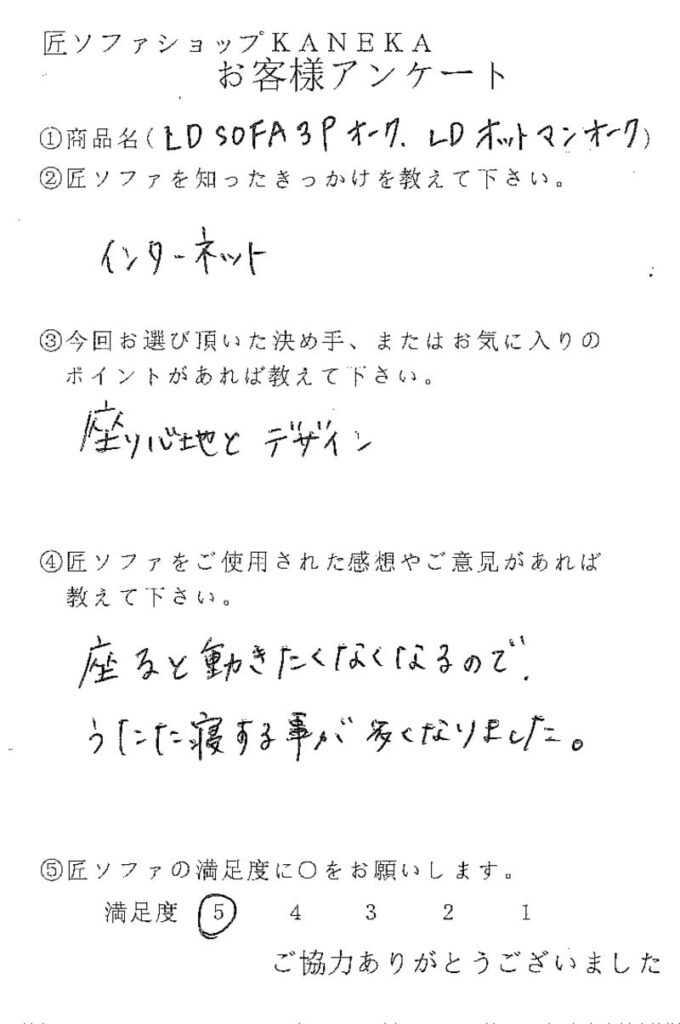 匠ソファショップKANEKA
お客様アンケート
①商品名(LD SOFA 3P オーク. LD オットマンオーク)
②匠ソファを知ったきっかけを教えて下さい。
インターネット
③今回お選び頂いた決め手、またはお気に入りの
ポイントがあれば教えて下さい。
座り心地と デザイン
④匠ソファをご使用された感想やご意見があれば
教えて下さい。
座ると動きたくなくなるので、
うたた寝する事が多くなりました。
⑤匠ソファの満足度に○をお願いします。
満足度 5 4 3 2 1
ご協力ありがとうございました